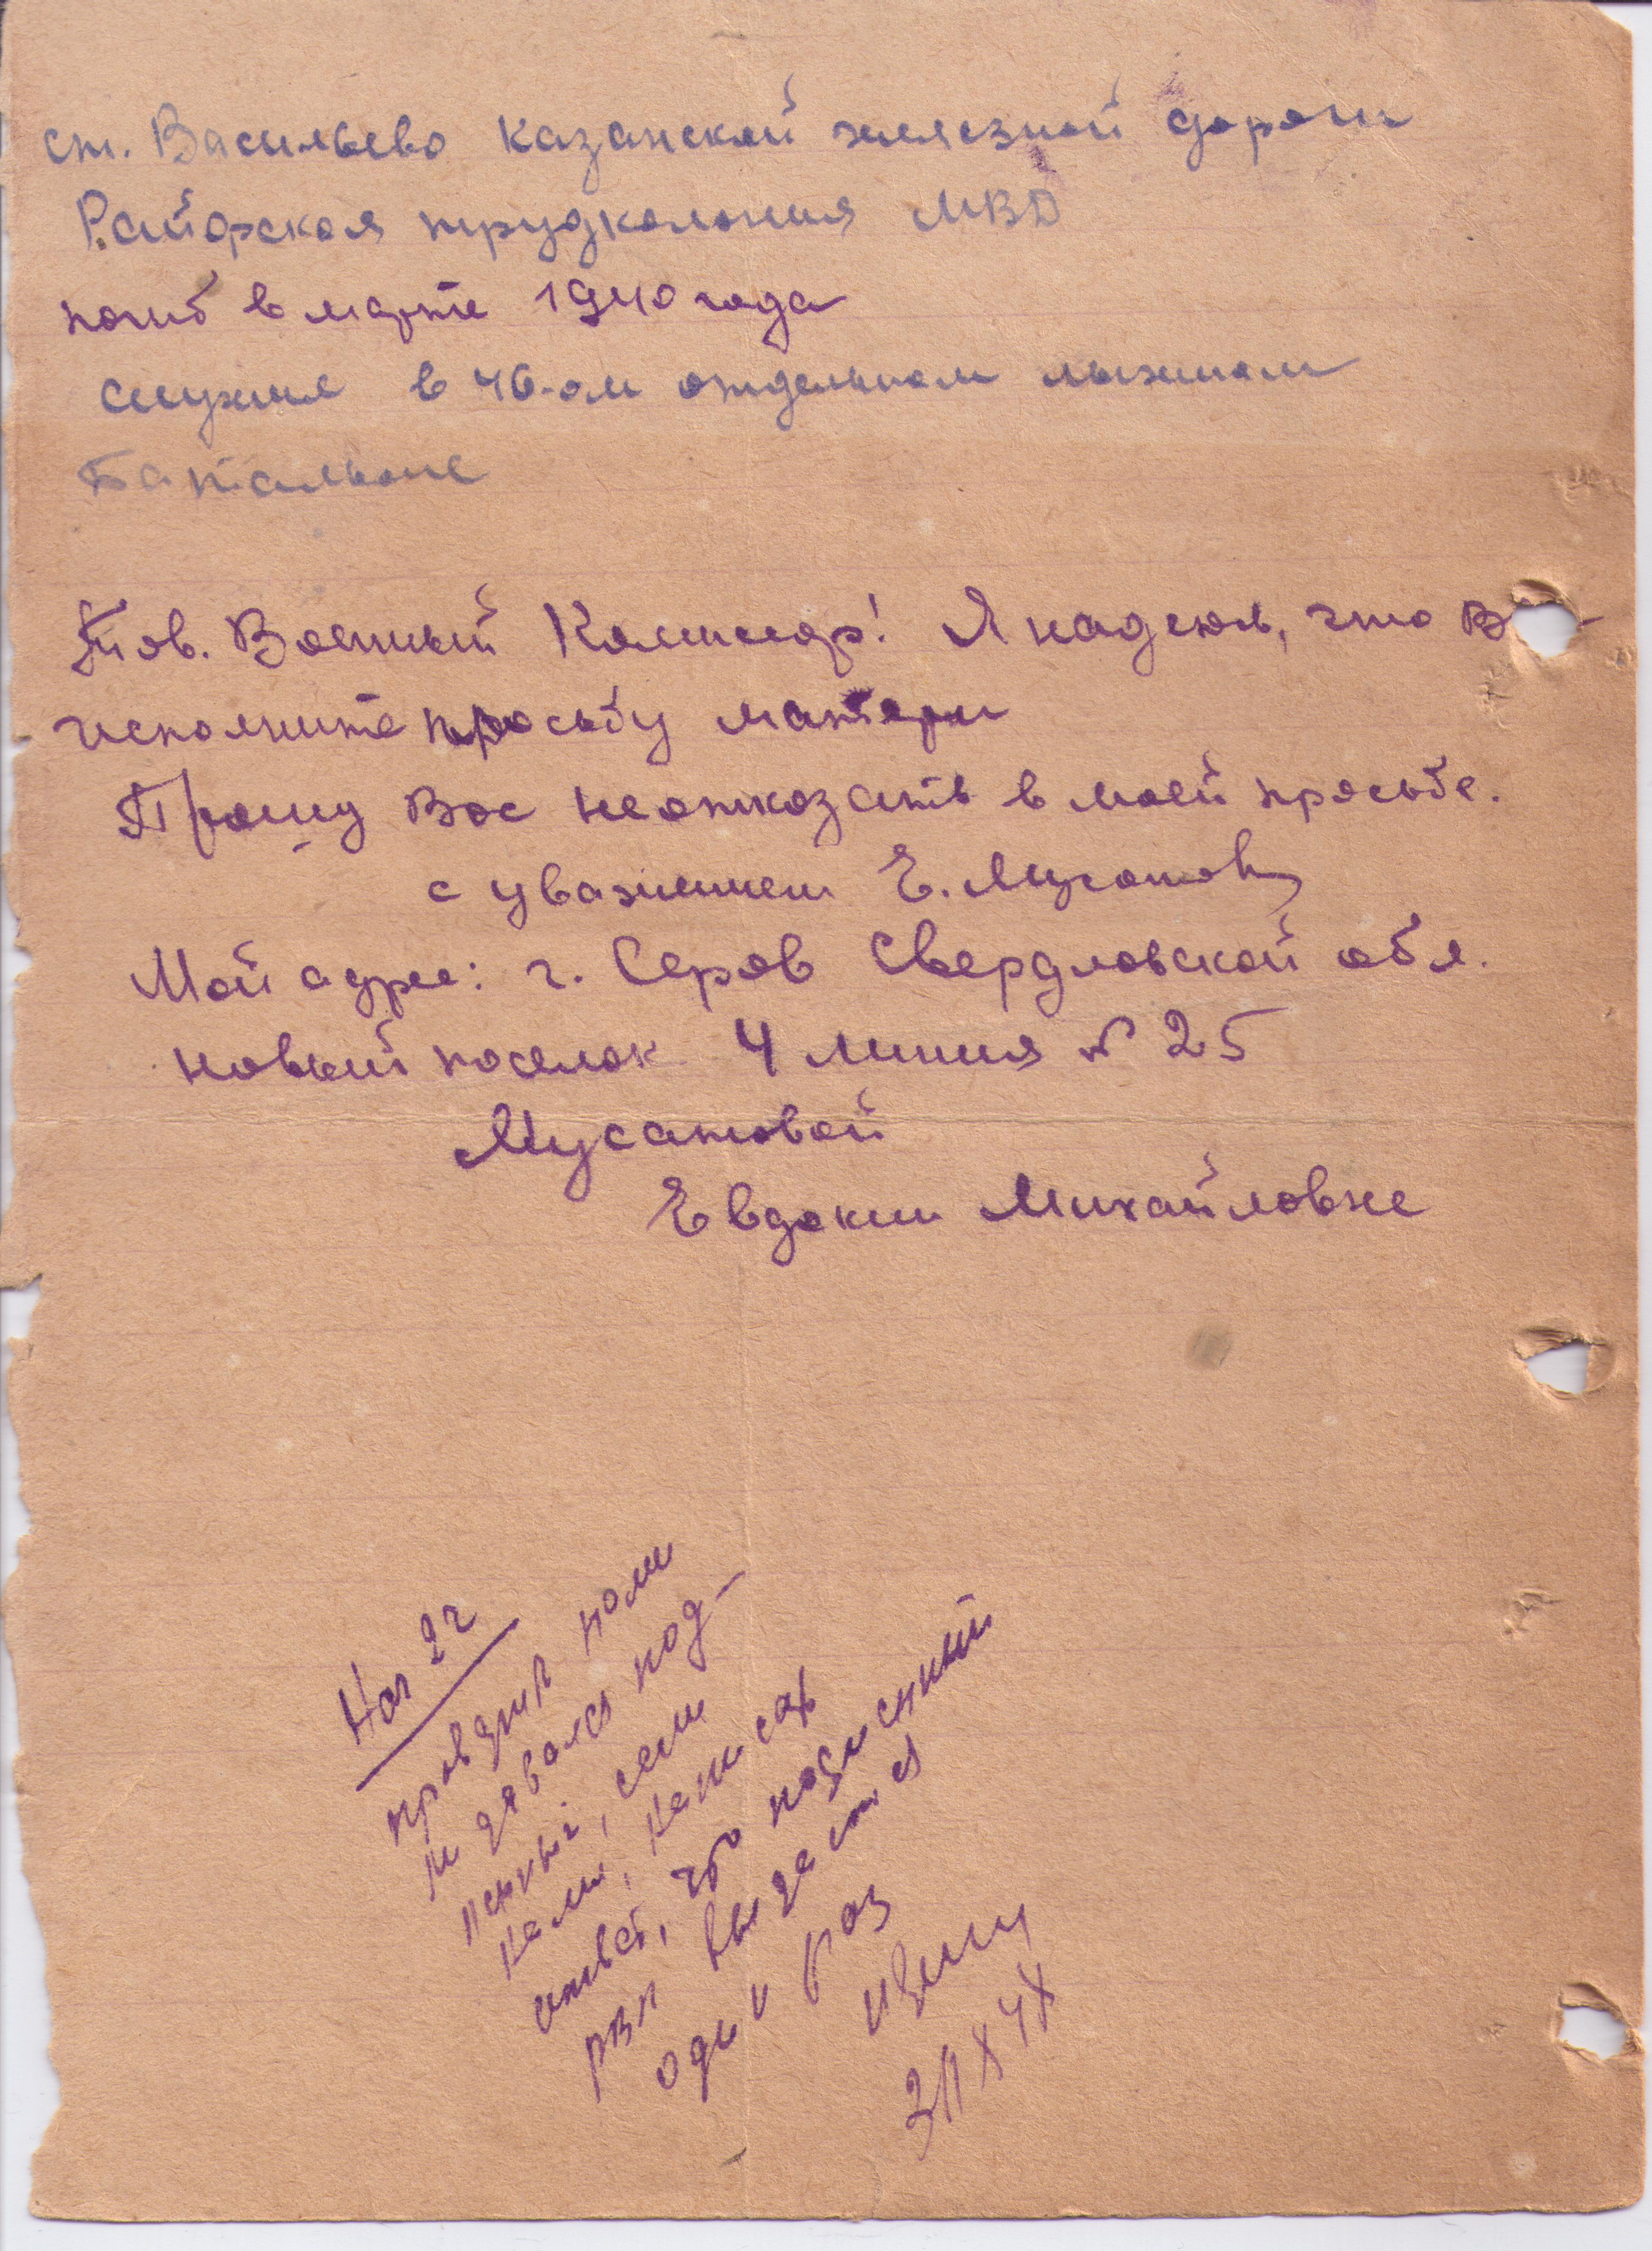 ст. Васильево Казанской железной дороги
Раифская трудколония МВД
погиб в марте 1940 года
служил в 46-ом отдельном лыжном
батальоне
Тов. Военный Комиссар! Я надеюсь, что В
исполните просьбу матери
Прошу Вас неотказать в моей просьбе.
с уважением Е. Мусатова
Мой адрес: г. Серов Свердловской обл.
новый поселок 4 линия № 25
Мусатовой
Евдокии Михайловне
Нач 2ч
выдавался под-
линный, если
нами, написать
ответ, что подлинный
РВК выдается
один раз